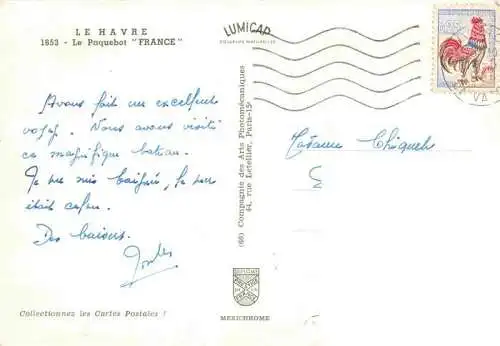 LE HAVRE
1853 - Le Paquebot "FRANCE"
LUMICAP
Avons fait un excellent
voyage. Nous avons visité
ce magnifique bateau.
Je me suis baigné, la mer
était calme.
Des baisers.
Madame
(66) Compagnie des Arts Photomécaniques
44, rue Letellier, Paris-15e
MEXICHROME
Collectionnez les Cartes Postales !